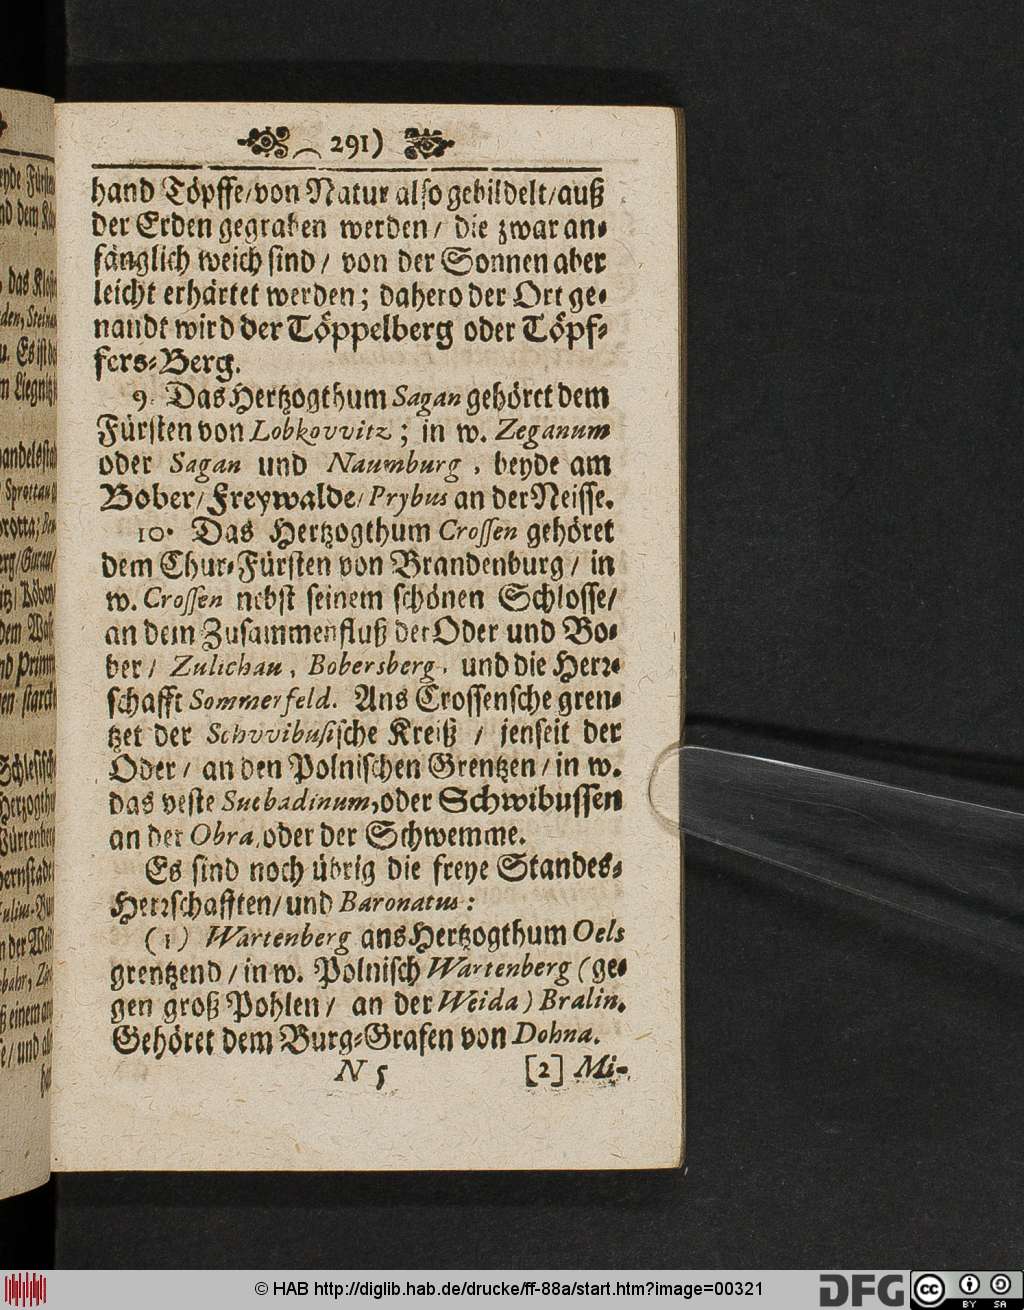 291)
hand Töpffe/von Natur also gebildelt/auß
der Erden gegraben werden/ die zwar an-
fänglich weich sind/ von der Sonnen aber
leicht erhärtet werden; dahero der Ort ge-
nandt wird der Töppelberg oder Töpf-
fers-Berg.
9. Das Hertzogthum Sagan gehöret dem
Fürsten von Lobkovvitz; in w. Zeganum
oder Sagan und Naumburg, beyde am
Bober/Freywalde/Prybus an der Neisse.
10. Das Hertzogthum Crossen gehöret
dem Chur-Fürsten von Brandenburg/ in
w. Crossen nebst seinem schönen Schlosse/
an dem Zusammenfluß der Oder und Bo-
ber/ Zulichau, Bobersberg, und die Herr-
schafft Sommerfeld. Ans Crossensche gren-
tzet der Schvvibusische Kreiß / jenseit der
Oder/ an den Polnischen Grentzen/in w.
das veste Suebadinum,oder Schwibussen
an der Obra,oder der Schwemme.
Es sind noch übrig die freye Standes-
Herrschafften/und Baronatus:
(1) Wartenberg ans Hertzogthum Oels
grentzend/in w. Polnisch Wartenberg (ge-
gen groß Pohlen/ an der Weida) Bralin.
Gehöret dem Burg-Grafen von Dohna.
N 5 [2] Mi-
© HAB http://diglib.hab.de/drucke/ff-88a/start.htm?image=00321
DFG
cc
BY SA